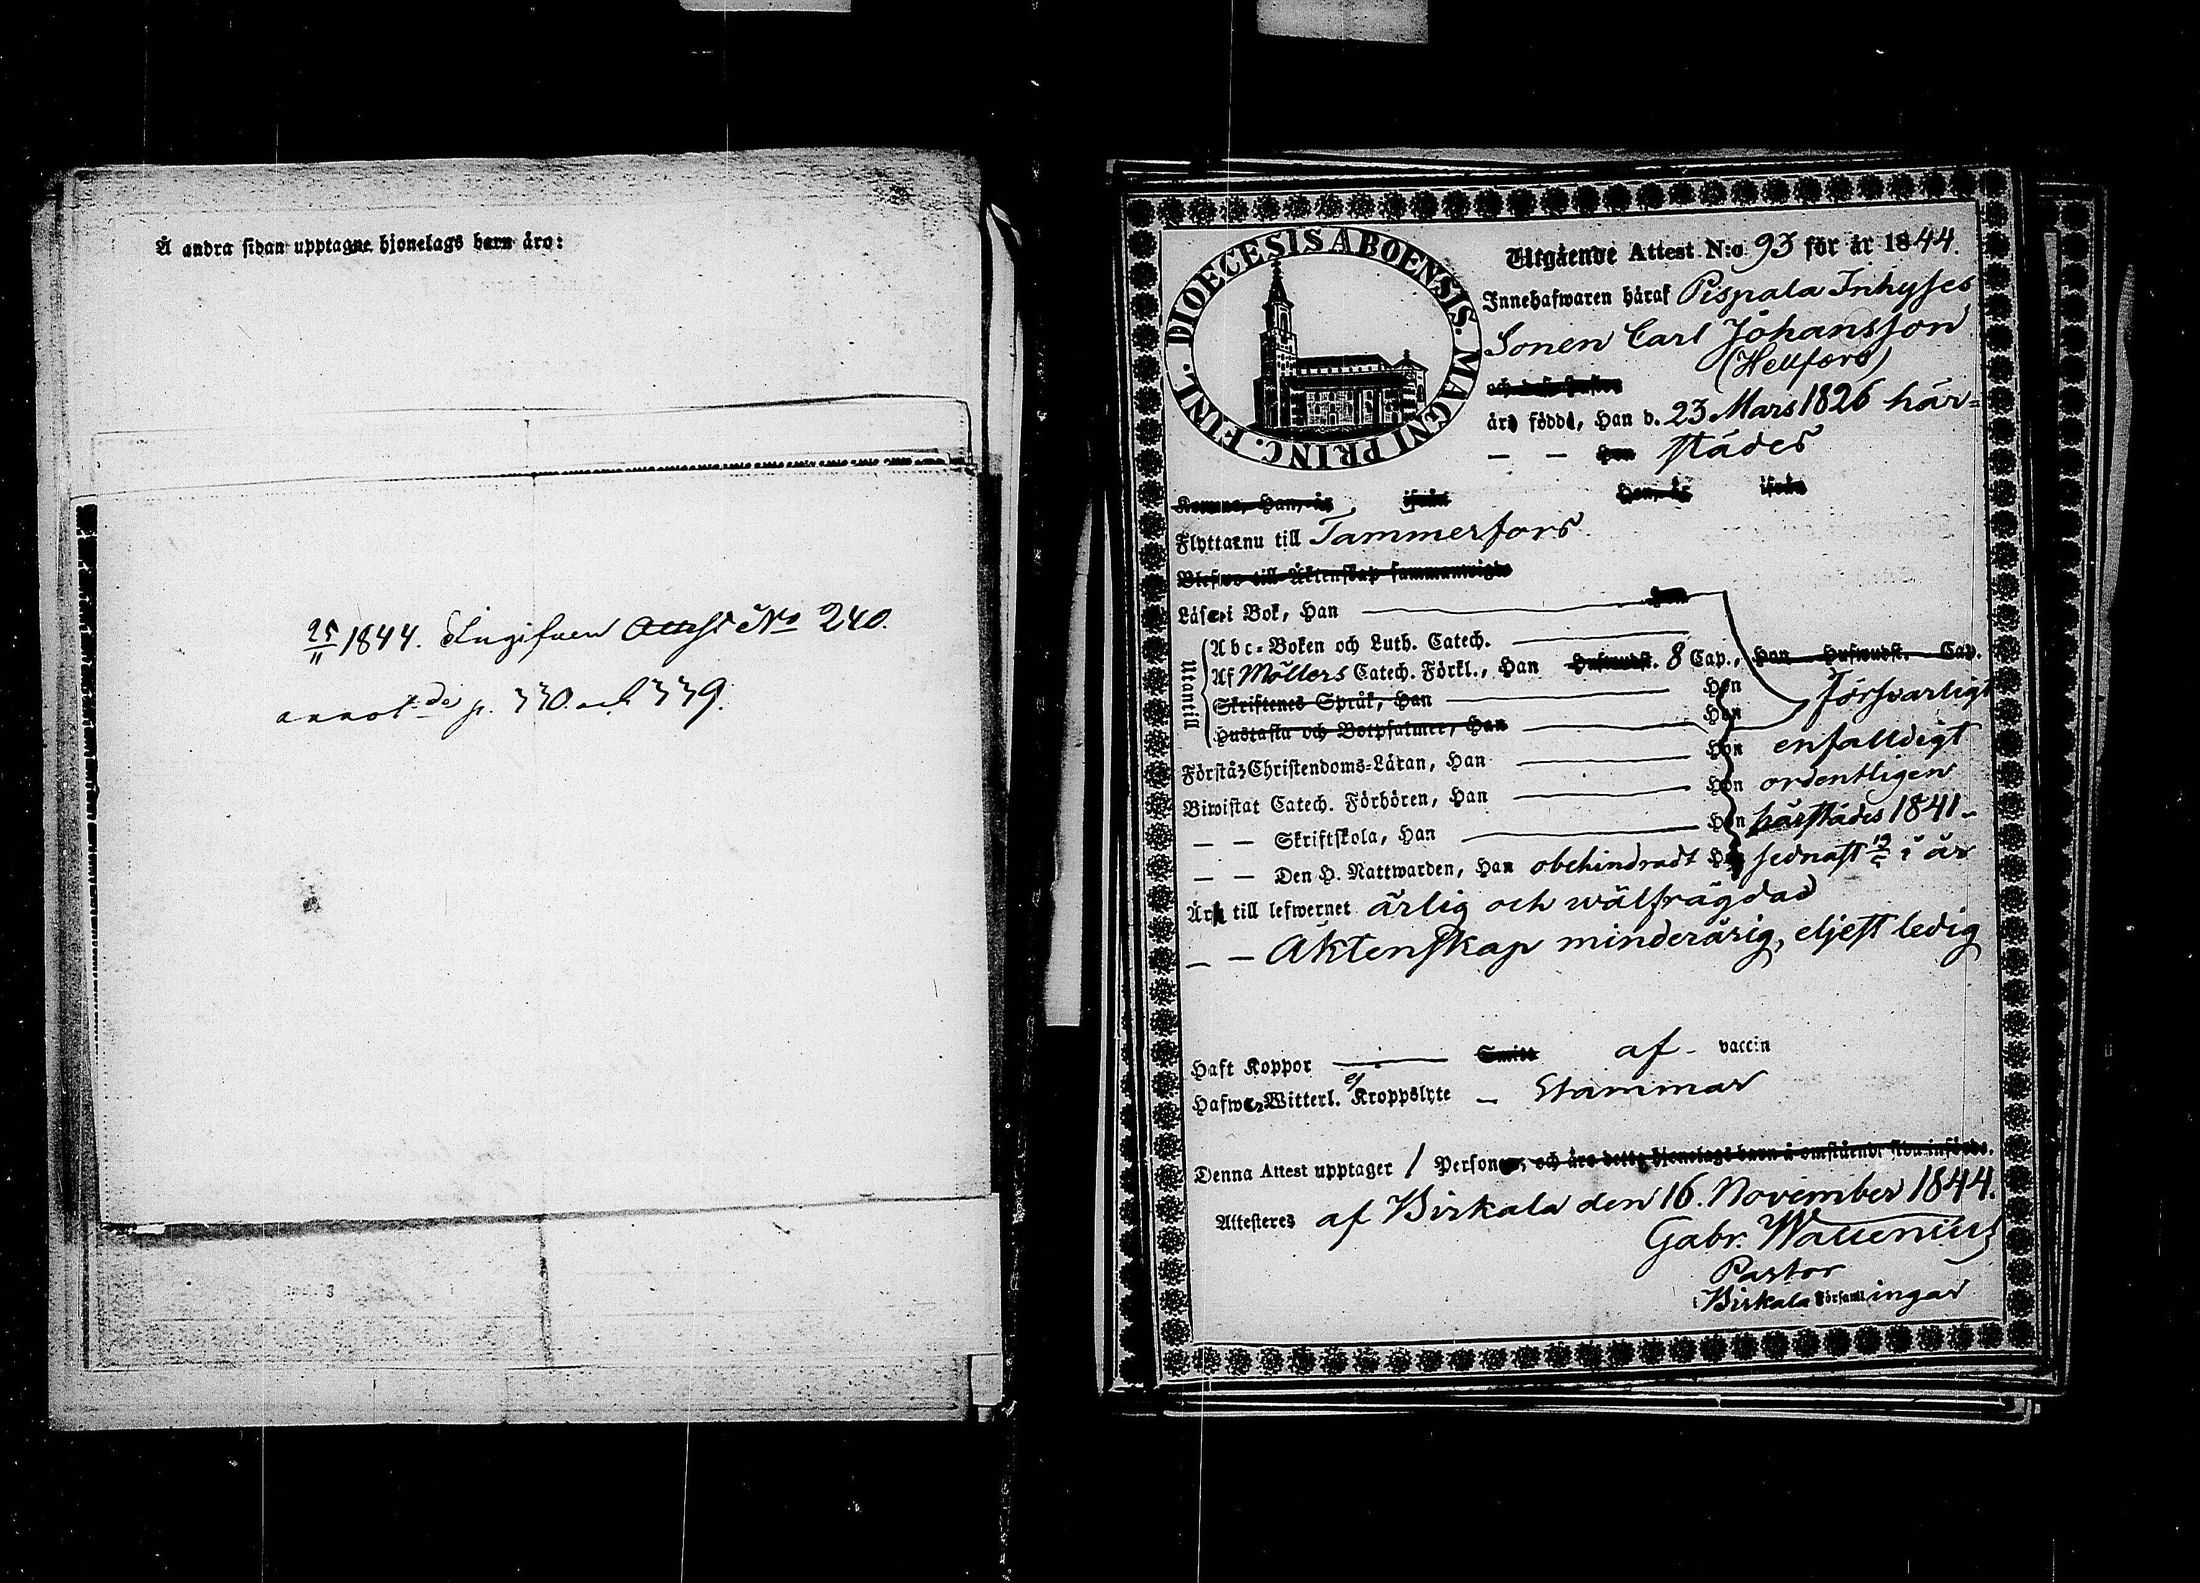 Å andra sidan upptagne hjonelags barn äro:
25/11 1844. Ingifven Attest No 240.
annot.de p. 330. och 339.
DIOECESIS ABOENSIS. MAGNI PRINC. FINL.
Utgående Attest N:o 93 för år 1844.
Innehafwaren häraf Pispala Inhyses
Sonen Carl Johansson
(Hellfors)
och dess hustru
äro född, Han d. 23 Mars 1826 här=
— — Hon städes
Komne, Han, år ifrån Hon, år ifrån
Flyttar nu till Tammerfors
Blefwo till Äktenskap sammanwigde
Läser i Bok, Han Hon
Utantill
Abc-Boken och Luth. Catech.
Af Möllers Catech. Förkl., Han Hufwudst. 8 Cap., Hon Hufwudst. Cap.
Skriftenes Språk, Han Hon försvarligt
Hustafla och Botpsalmer, Han Hon
Förstår Christendoms-Läran, Han Hon enfalldigt
Biwistat Catech. Förhören, Han Hon ordentligen
— — Skriftskola, Han Hon härstädes 1841
— — Den H. Nattwarden, Han obehindradt Hon sednast i år
Är till lefwernet ärlig och wälfrägdad
— — Äktenskap minderårig, eljest ledig
Haft Koppor Smitta af vaccin
Hafwer Witterl. ej Kroppslyte — Stammar
Denna Attest upptager 1 Person och äro detta hjonelags barn å omstående sida införde.
Attesteres af Birkala den 16. November 1844.
Gabr. Wallenius
Pastor
i Birkala Församlingar